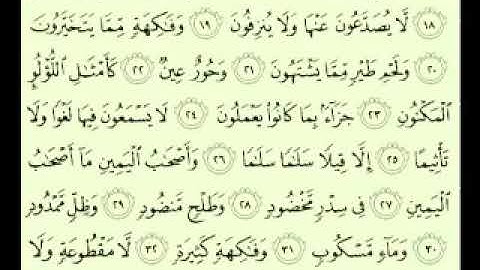 ١٨ لَّا يُصَدَّعُونَ عَنْهَا وَلَا يُنزِفُونَ ١٩ وَفَٰكِهَةٍ مِّمَّا يَتَخَيَّرُونَ
٢٠ وَلَحْمِ طَيْرٍ مِّمَّا يَشْتَهُونَ ٢١ وَحُورٌ عِينٌ ٢٢ كَأَمْثَٰلِ اللُّؤْلُؤِ
الْمَكْنُونِ ٢٣ جَزَآءًۢ بِمَا كَانُوا۟ يَعْمَلُونَ ٢٤ لَا يَسْمَعُونَ فِيهَا لَغْوًا وَلَا
تَأْثِيمًا ٢٥ إِلَّا قِيلًا سَلَٰمًا سَلَٰمًا ٢٦ وَأَصْحَٰبُ الْيَمِينِ مَآ أَصْحَٰبُ
الْيَمِينِ ٢٧ فِى سِدْرٍ مَّخْضُودٍ ٢٨ وَطَلْحٍ مَّنضُودٍ ٢٩ وَظِلٍّ مَّمْدُودٍ
٣٠ وَمَآءٍ مَّسْكُوبٍ ٣١ وَفَٰكِهَةٍ كَثِيرَةٍ ٣٢ لَّا مَقْطُوعَةٍ وَلَا